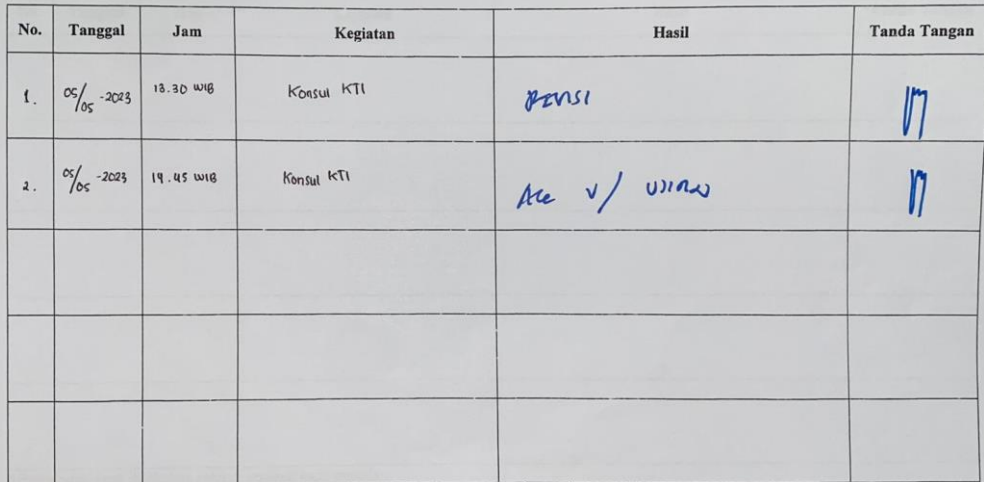 No. Tanggal Jam Kegiatan Hasil Tanda Tangan
1. 05/05-2023 13.30 WIB Konsul KTI REVISI
2. 05/05-2023 19.45 WIB Konsul KTI Acc U/